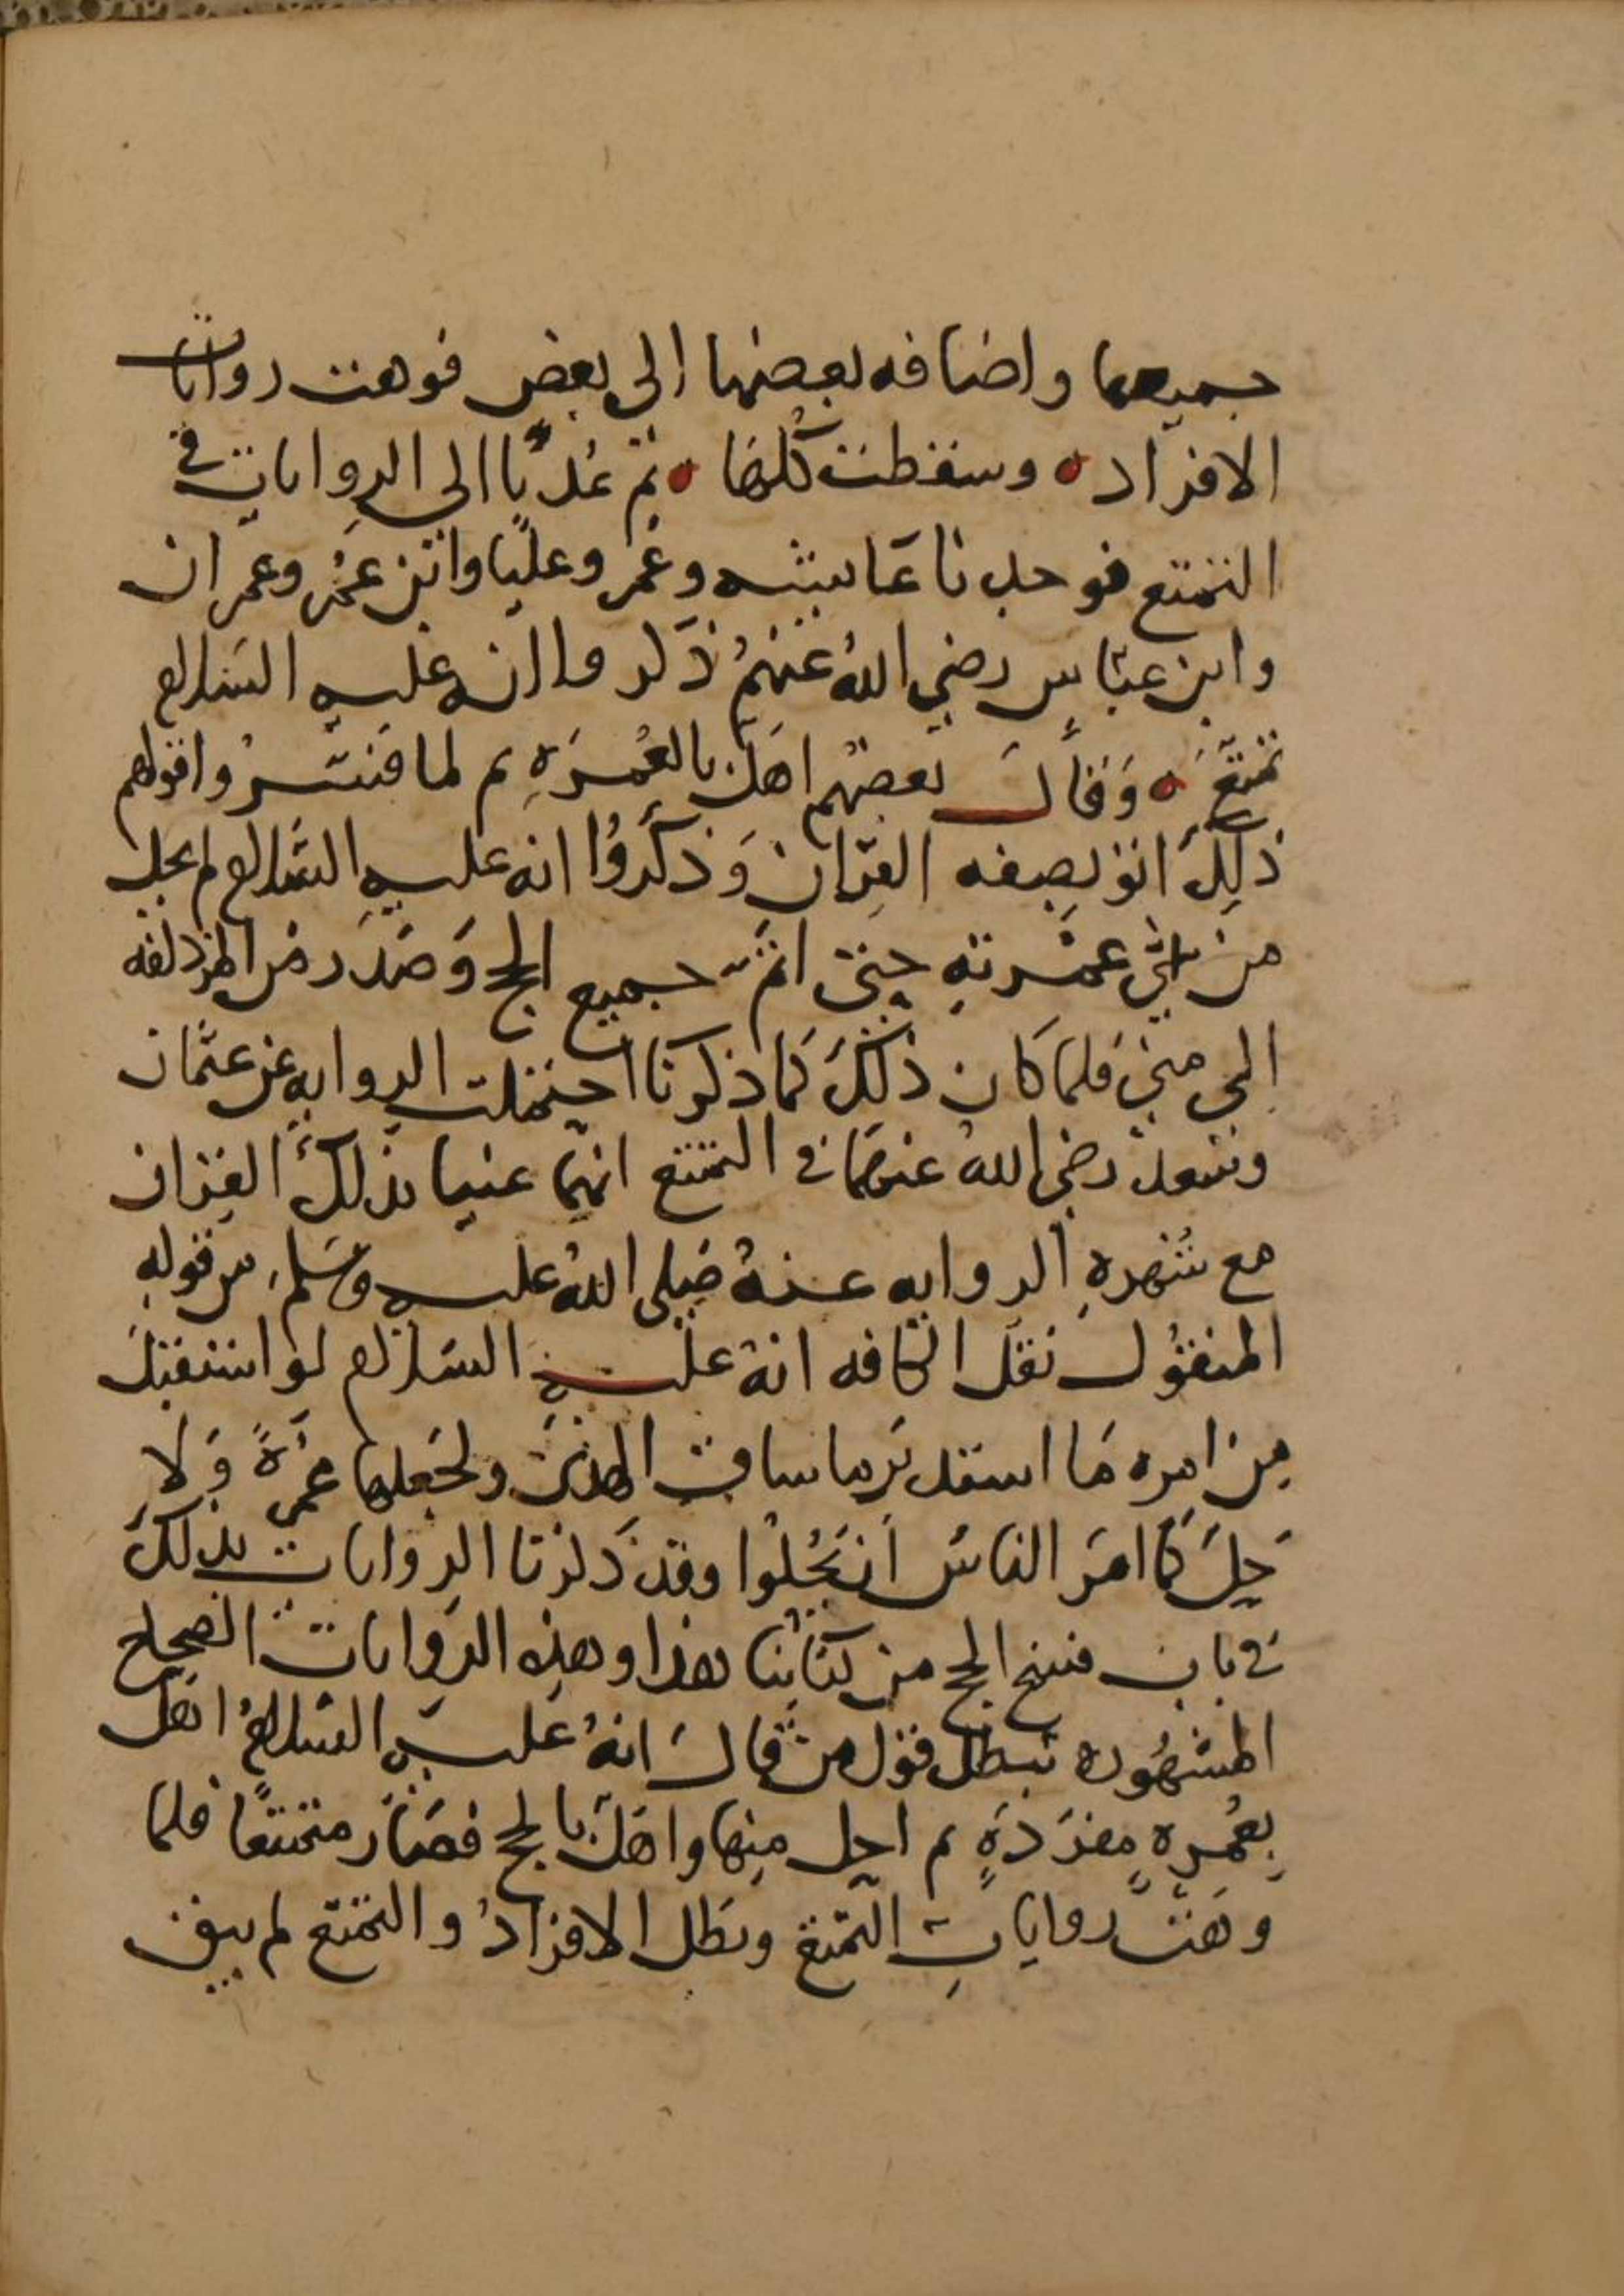 جميعها واضافه بعضها الى بعض فوهت روايات
الافراد ه وسقطت كلها ه ثم عُدنا الى الروايات في
التمتع فوجدنا عَايشه وعُمر وعليًا وابن عمُر وعمران
وابن عبّاس رضي اللهُ عنهُم ذكروا انه عليه السَلام
تمتّعَ ه وَقَالَ بعضهُم اهَلّ بالعُمرَهِ ثم لما فَسّرُوا قولهم
ذلِكَ اتو بصفه القِرَان وَذكَرُوا انه عليهِ السَّلام لم يحل
من عمُرتهِ حتى اتمّ جميع الحج وَصَدَر من المزدلفه
إلى منىً فلما كَان ذلكَ كَما ذكرنا احتملت الروايه عن عثمان
وسَعد رضي الله عنهمَا في التمتع انهما عنيا بذلكَ القِران
مع شُهرهِ الروايه عنهُ صَلى اللهُ عليه وسَلم من قولهِ
المنقُول نقلَ الكافه انهُ عليهِ السَلام لو استقبل
مِن امره مَا استدبَر ما ساقَ الهدىَ ولجَعلها عمُرَةً وَلا
حِلَ كما امَرَ الناسَ اَن يَحُلُوا وقد ذكرنا الروايات بذلكَ
في باب فسخ الحج من كتابنا هذا وهذِه الرَوايات الصِحاح
المشهُوره تبطل قول من قالَ انهُ عليهِ السَلامُ اهَل
بِعُمرهٍ مفرَدَهٍ ثم احل منها واهَلّ بالحج فصَارَ متمتعًا فلما
وهَتْ روايَاتِ التمّتع وبَطل الافرَادُ والتمتع لم يبق